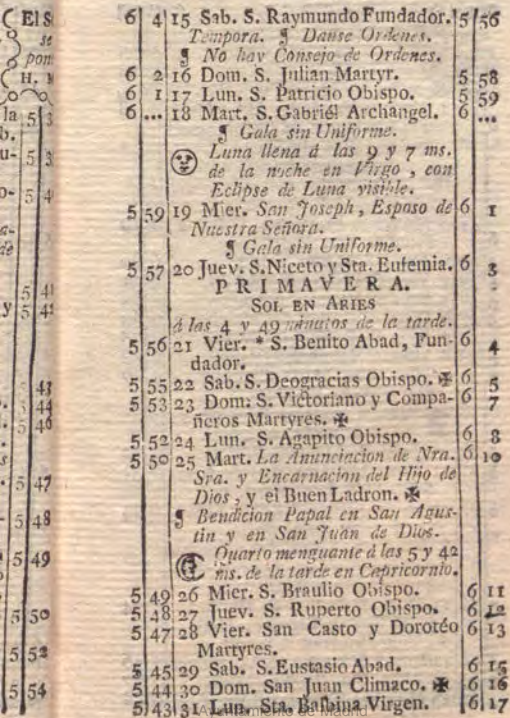 El S
se
pon
H. M
la 5 3
b.
u- 5 3
o- 5 4
a-
de
5 41
y 5 42
43
44
46
5 47
5 48
5 49
5 50
5 52
5 54
6 4 15 Sab. S. Raymundo Fundador. 5 56
Tempora. ¶ Danse Ordenes.
¶ No hay Consejo de Ordenes.
6 2 16 Dom. S. Julian Martyr. 5 58
6 1 17 Lun. S. Patricio Obispo. 5 59
6 ... 18 Mart. S. Gabriél Archangel. 6 ...
¶ Gala sin Uniforme.
Luna llena á las 9 y 7 ms.
de la noche en Virgo, con
Eclipse de Luna visible.
5 59 19 Mier. San Joseph, Esposo de 6 1
Nuestra Señora.
¶ Gala sin Uniforme.
5 57 20 Juev. S. Niceto y Sta. Eufemia. 6 3
PRIMAVERA.
SOL EN ARIES
á las 4 y 49 minutos de la tarde.
5 56 21 Vier. * S. Benito Abad, Fun- 6 4
dador.
5 55 22 Sab. S. Deogracias Obispo. ✠ 6 5
5 53 23 Dom. S. Victoriano y Compa- 6 7
ñeros Martyres. ✠
5 52 24 Lun. S. Agapito Obispo. 6 8
5 50 25 Mart. La Anunciacion de Nra. 6 10
Sra. y Encarnacion del Hijo de
Dios, y el Buen Ladron. ✠
¶ Bendicion Papal en San Agus-
tin y en San Juan de Dios.
Quarto menguante á las 5 y 42
ms. de la tarde en Capricornio.
5 49 26 Mier. S. Braulio Obispo. 6 11
5 48 27 Juev. S. Ruperto Obispo. 6 12
5 47 28 Vier. San Casto y Dorotéo 6 13
Martyres.
5 45 29 Sab. S. Eustasio Abad. 6 15
5 44 30 Dom. San Juan Climaco. ✠ 6 16
5 43 31 Lun. Sta. Balbina Virgen. 6 17
Ayuntamiento de Madrid